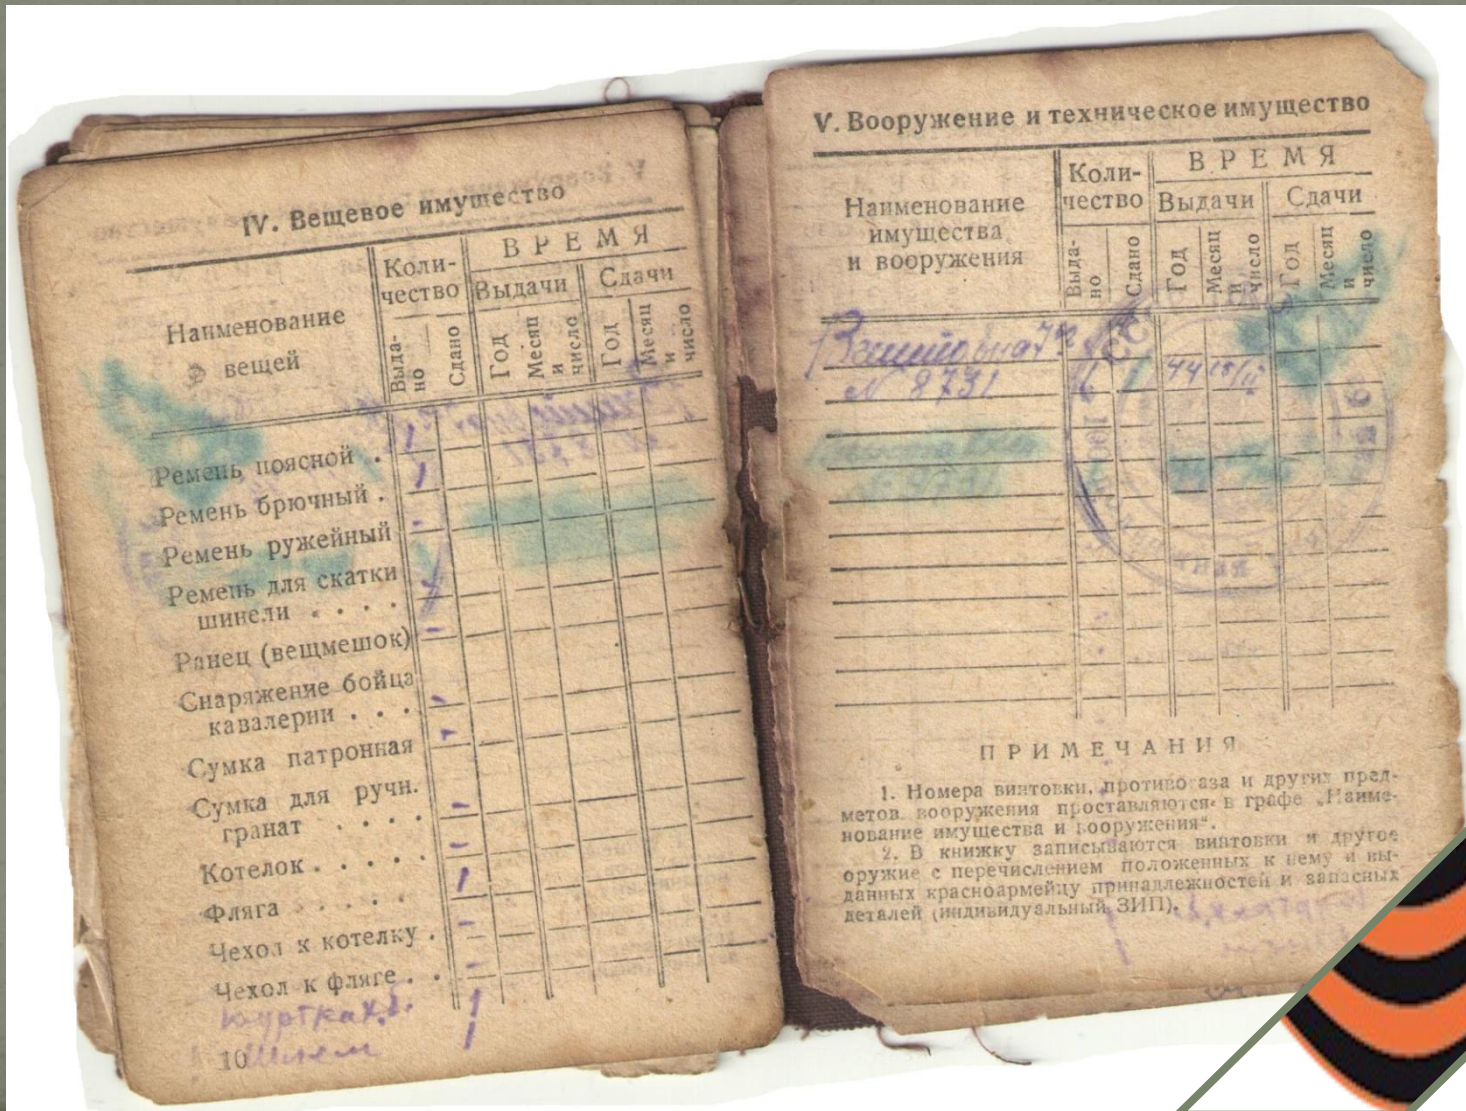 IV. Вещевое имущество
Наименование
вещей
Коли-
чество
ВРЕМЯ
Выдачи
Сдачи
Выда-
но
Сдано
Год
Месяц
и
число
Год
Месяц
и
число
Ремень поясной . 1
Ремень брючный . 1
Ремень ружейный -
Ремень для скатки
шинели . . . .
Ранец (вещмешок) -
Снаряжение бойца
кавалерии . . . -
Сумка патронная -
Сумка для ручн.
гранат . . . . -
Котелок . . . . . -
Фляга . . . . . 1
Чехол к котелку . -
Чехол к фляге . . -
Куртка х.б. 1
Шлем 1
10
V. Вооружение и техническое имущество
Наименование
имущества
и вооружения
Коли-
чество
ВРЕМЯ
Выдачи
Сдачи
Выда-
но
Сдано
Год
Месяц
и
число
Год
Месяц
и
число
Винтовка
N 8731 44
ПРИМЕЧАНИЯ
1. Номера винтовки, противогаза и других пред-
метов вооружения проставляются в графе „Наиме-
нование имущества и вооружения“.
2. В книжку записываются винтовки и другое
оружие с перечислением положенных к нему и вы-
данных красноармейцу принадлежностей и запасных
деталей (индивидуальный ЗИП).